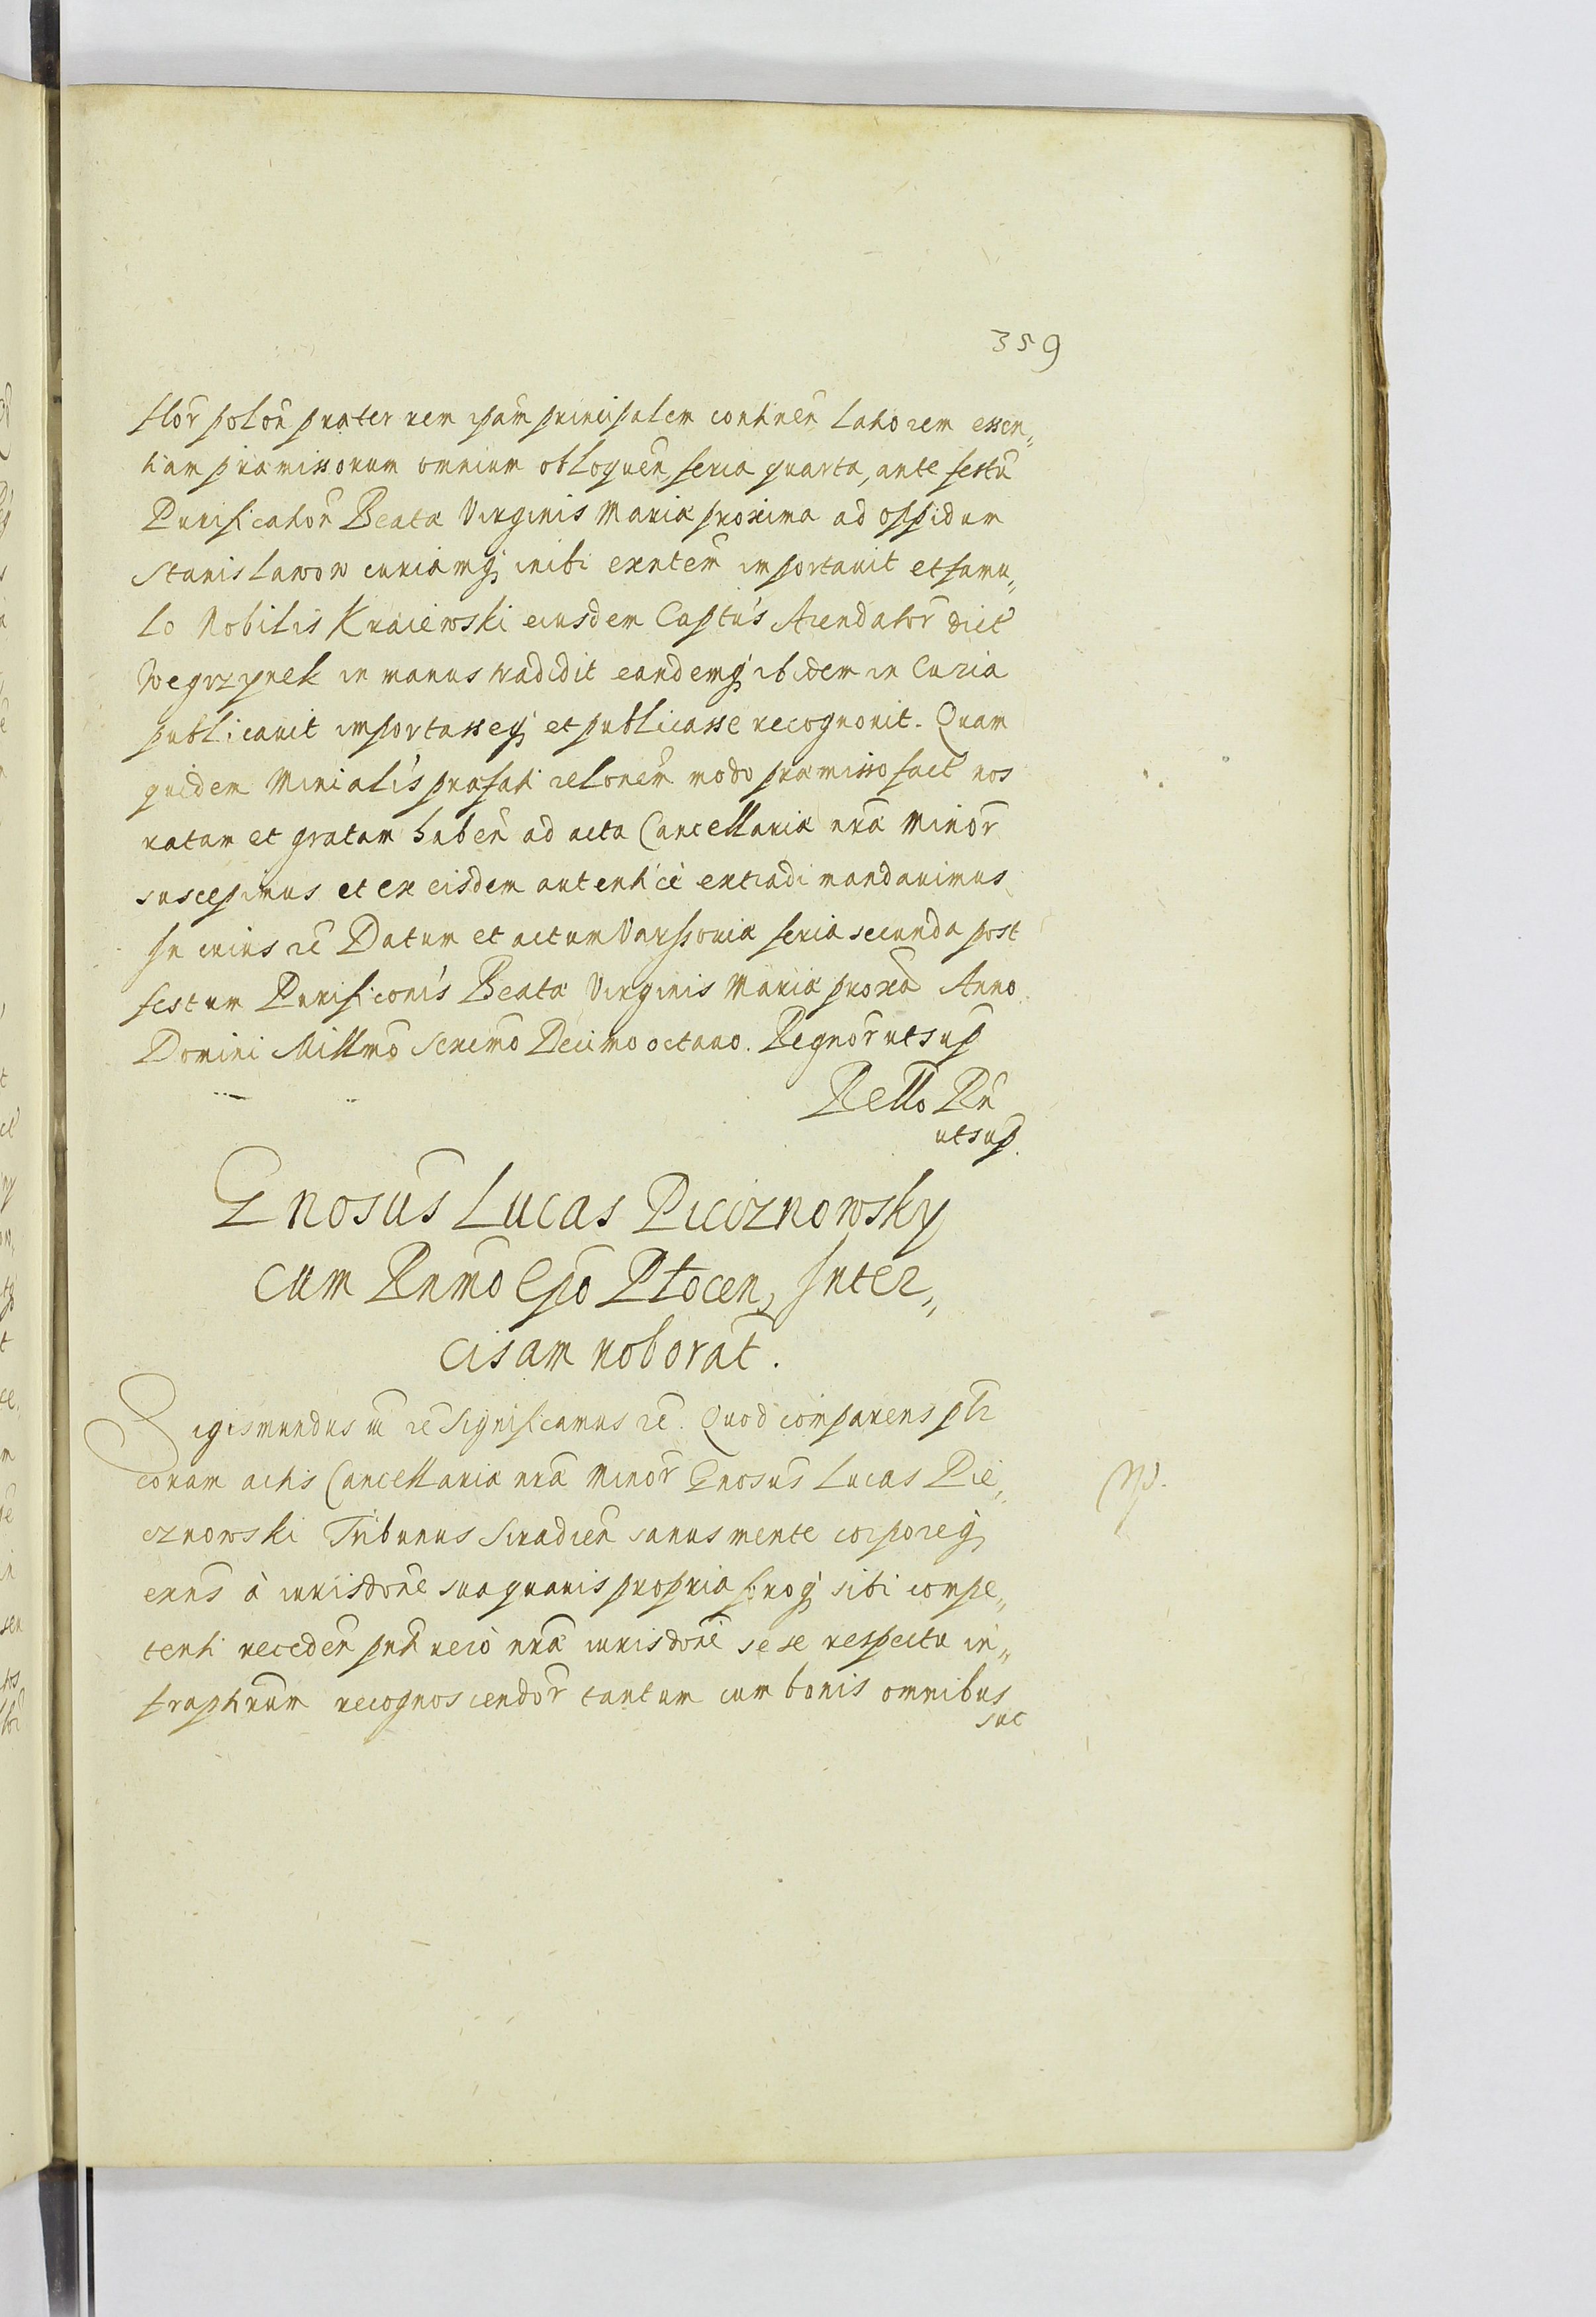 359
flor̃ polon̄ præter rem ipãm principalem continen̄ latiorem essen„
tiam præmissorum omnium obloquen̄, feria quarta, ante festū
Purification̄ Beatæ Virginis Mariæ proxima ad oppidum
Stanislawow curiamq; inibi exñtem importauit et famu„
lo Nobilis Kraiewski eiusdem Captus Arendator̄ dict̄
Wegrzynek in manus tradidit eandemq; ibidem in Curia
publicauit importasseq; et publicasse recognouit. Quam
quidem Ministialis præfati relõnem modo præmisso fact̄ nos
ratam et gratam haben̄ ad acta Cancellariæ nr̃æ Minor̄
suscepimus et ex eisdem autenticè extradi mandauimus
In cuius rē Datum et actum Varssouiæ feria secunda post
festum Purificõnis Beatæ Virginis Mariæ prox̃a Anno
Domini Mill̃mo Sex̃cmo Decimo octauo. Regnor̄ ut sup̃
Rel̃lo Rñ
ut sup̃.
Gñosus Lucas Piecznowsky
cum Rñmo Ep̃o Płocen̄, Inter„
cisam roborat̄.
Sigismundus III rē Significamus rē. Quod comparens pl̃r
coram actis Cancellariæ nr̃æ Minor̄ Gñosus Lucas Pie„
cznowski Tribunus Siradien̄ sanus mente corporeq;
exñs à iurisdõne sua quauis propria foroq; sibi compe„
tenti receden̄ pñti verò nr̃æ iurisdõni sese respectu in„
frapt̃rum recognoscendor̄ tantum cum bonis omnibus
suc